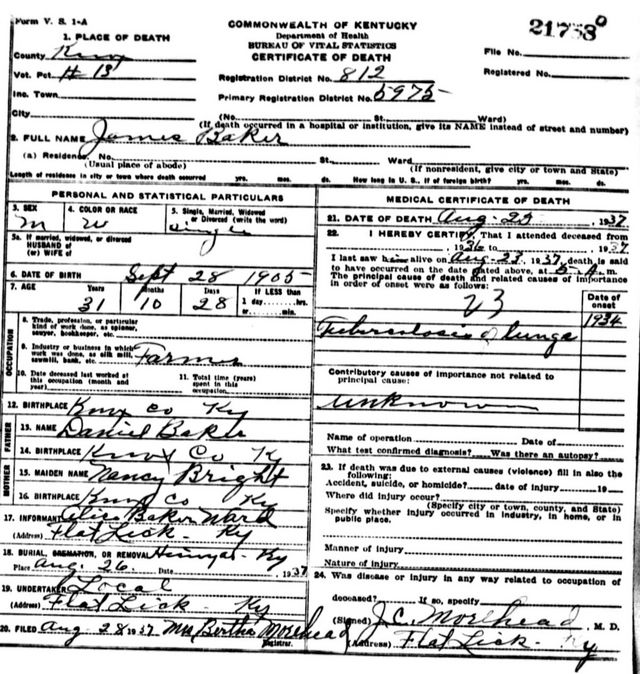 Form V. S. 1-A
COMMONWEALTH OF KENTUCKY
Department of Health
BUREAU OF VITAL STATISTICS
CERTIFICATE OF DEATH
21758
1. PLACE OF DEATH
County Knox
Vot. Pct. # 13
Inc. Town
City
Registration District No. 812
Primary Registration District No. 5975
File No.
Registered No.
(No. St. Ward)
(If death occurred in a hospital or institution, give its NAME instead of street and number)
2. FULL NAME James Baker
(a) Residence. No. St., Ward
(Usual place of abode) (If nonresident, give city or town and State)
Length of residence in city or town where death occurred yrs. mos. ds. How long in U. S., if of foreign birth? yrs. mos. ds.
PERSONAL AND STATISTICAL PARTICULARS
3. SEX M
4. COLOR OR RACE W
5. Single, Married, Widowed or Divorced (write the word) Single
5a. If married, widowed, or divorced
HUSBAND of
(or) WIFE of
6. DATE OF BIRTH Sept 28 1905
7. AGE Years Months Days If LESS than
31 10 28 1 day hrs.
or min.
OCCUPATION
8. Trade, profession, or particular
kind of work done, as spinner,
sawyer, bookkeeper, etc.
9. Industry or business in which
work was done, as silk mill,
sawmill, bank, etc. Farmer
10. Date deceased last worked at
this occupation (month and
year)
11. Total time (years)
spent in this
occupation
12. BIRTHPLACE Knox Co Ky
FATHER
13. NAME Daniel Baker
14. BIRTHPLACE Knox Co Ky
MOTHER
15. MAIDEN NAME Nancy Bright
16. BIRTHPLACE Knox Co Ky
17. INFORMANT Alice Baker Ward
(Address) Flat Lick - Ky
18. BURIAL, CREMATION, OR REMOVAL Hinkle Ky
Place Aug. 26. Date 1937
19. UNDERTAKER Local
(Address) Flat Lick - Ky
20. FILED Aug 28 1937 Mrs Bertha Morehead
Registrar.
MEDICAL CERTIFICATE OF DEATH
21. DATE OF DEATH Aug - 25, 1937
22. I HEREBY CERTIFY, That I attended deceased from
1936 to 1937
I last saw him alive on Aug - 23, 1937, death is said
to have occurred on the date stated above, at 5 A. m.
The principal cause of death and related causes of importance
in order of onset were as follows:
Date of onset
23
Tuberculosis of lungs 1934
Contributory causes of importance not related to
principal cause:
unknown
Name of operation Date of
What test confirmed diagnosis? Was there an autopsy?
23. If death was due to external causes (violence) fill in also the
following:
Accident, suicide, or homicide? date of injury 19
Where did injury occur?
(Specify city or town, county, and State)
Specify whether injury occurred in industry, in home, or in
public place.
Manner of injury
Nature of injury
24. Was disease or injury in any way related to occupation of
deceased? If so, specify
(Signed) J.C. Morehead, M. D.
(Address) Flat Lick - Ky